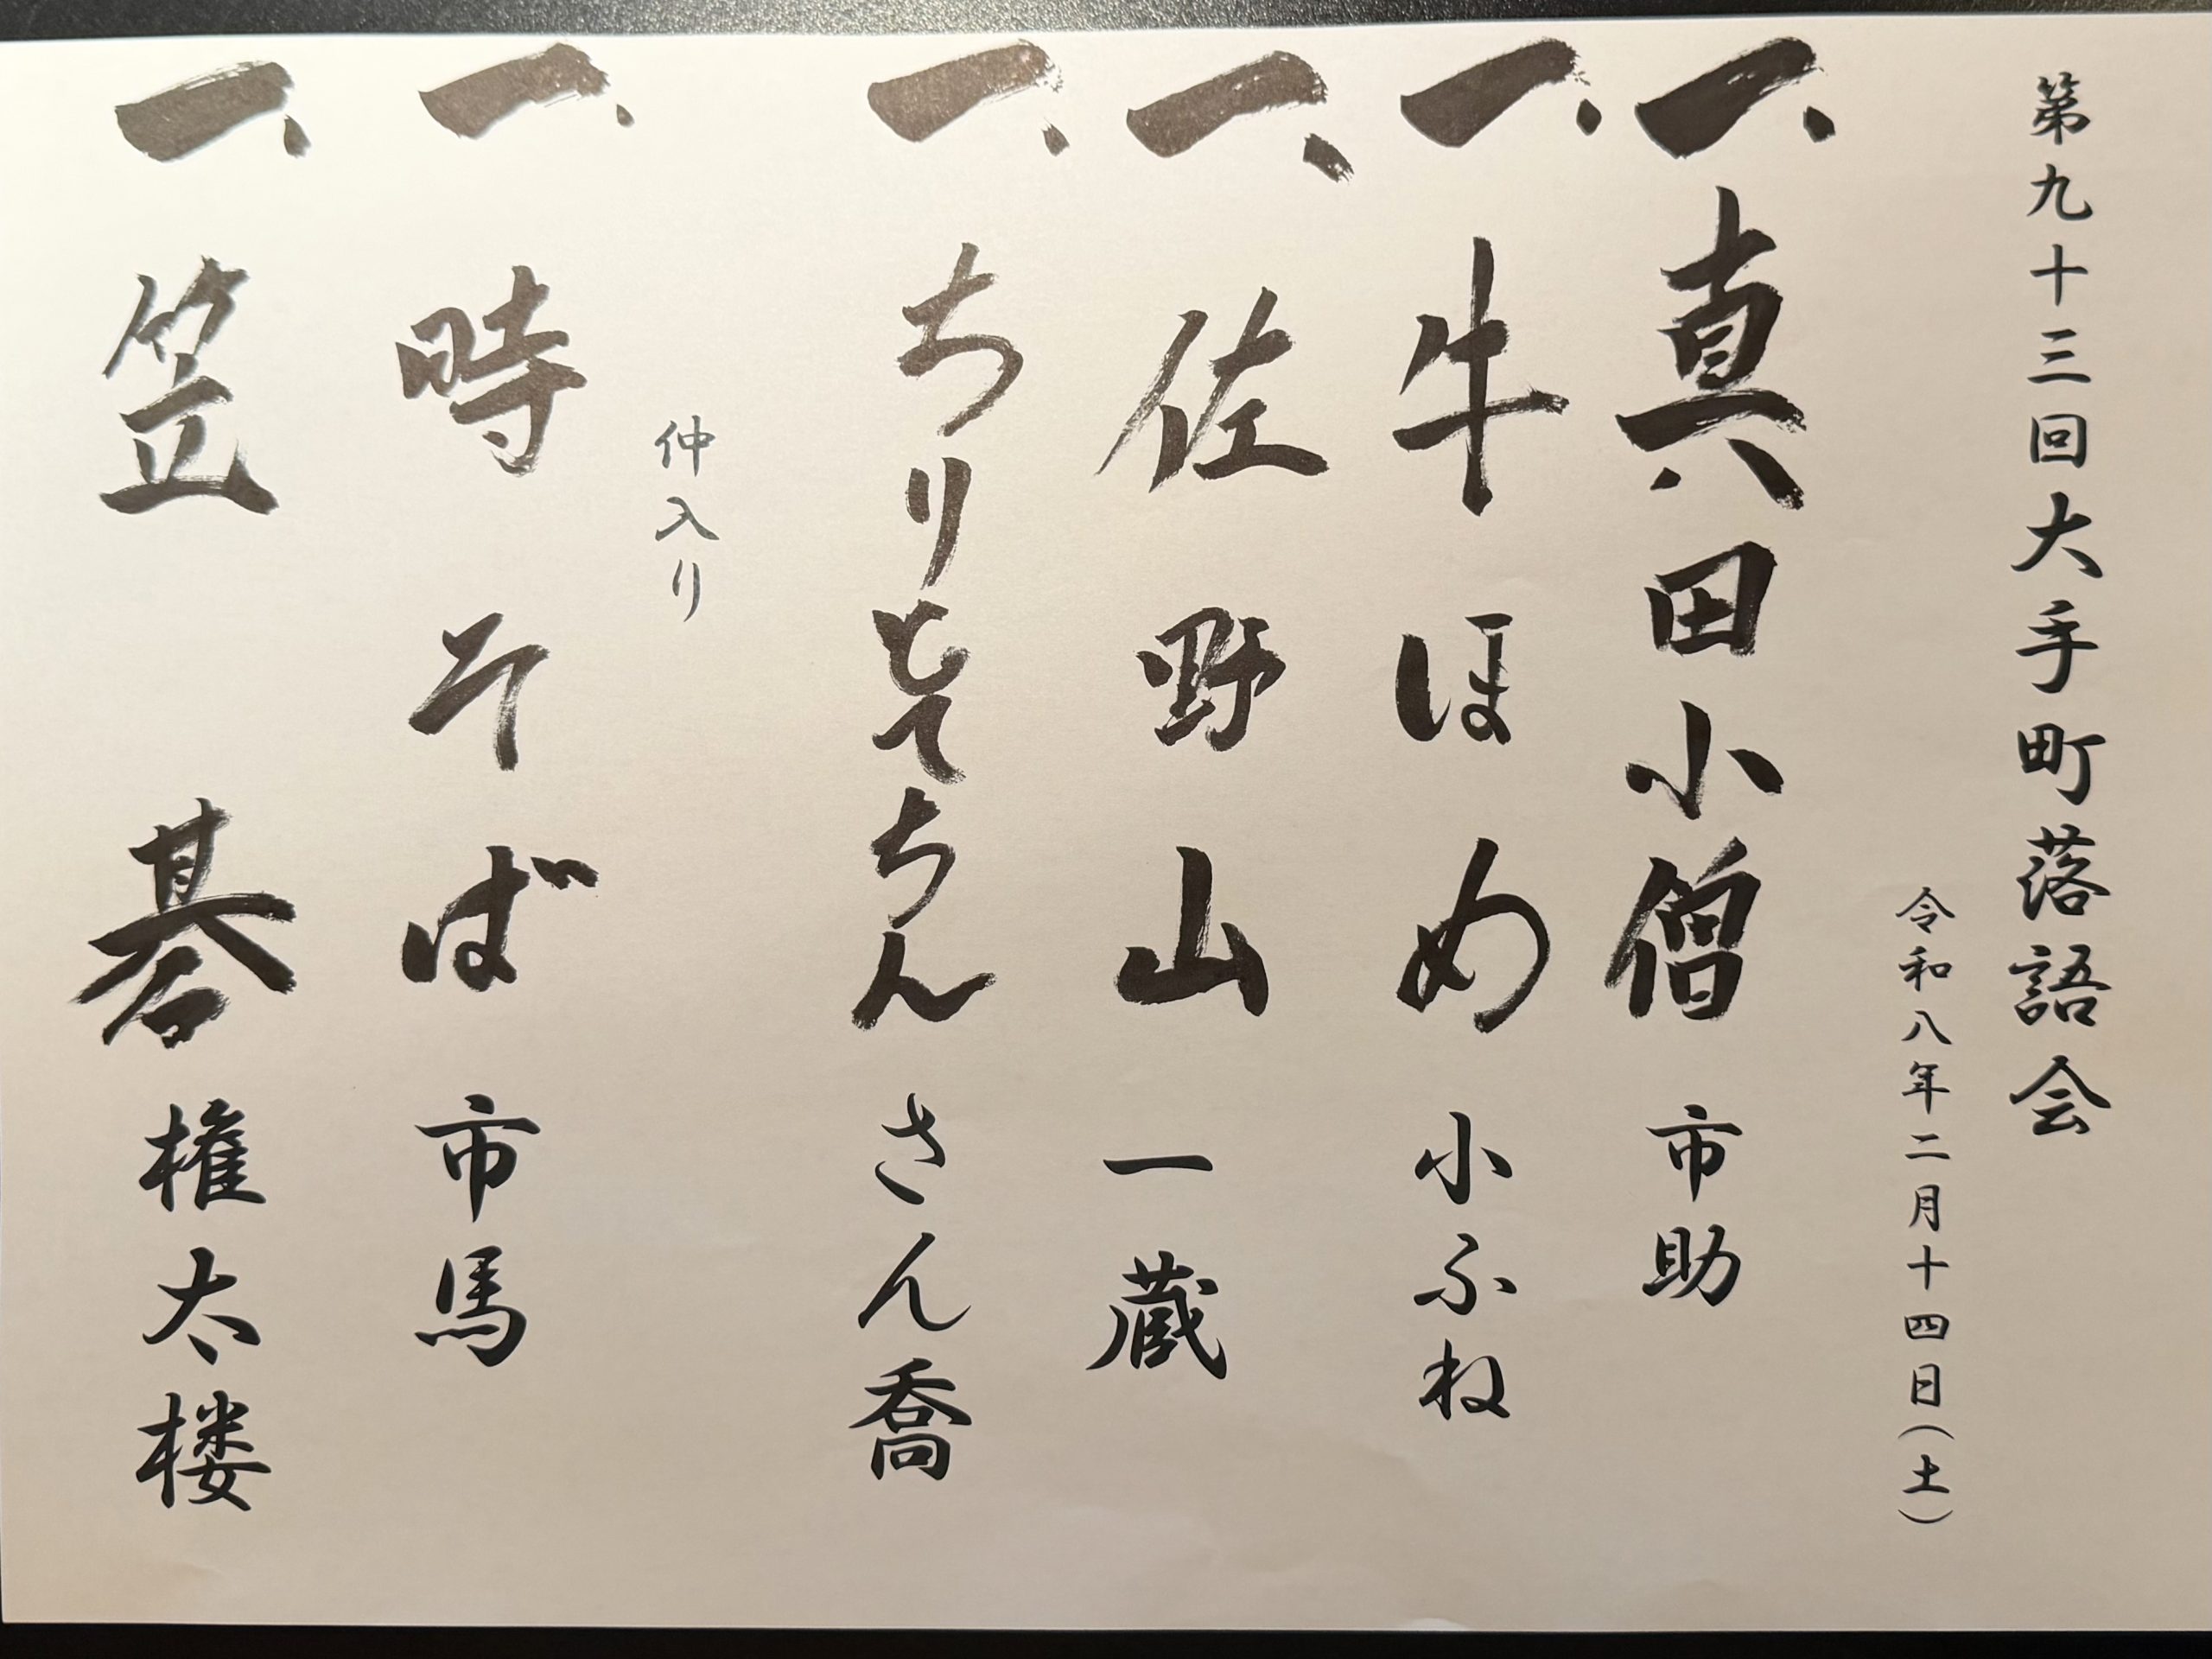 第九十三回大手町落語会
令和八年二月十四日(土)
一、真田小僧 市助
一、牛ほめ 小ふね
一、佐野山 一蔵
一、ちりとてちん さん喬
仲入り
一、時そば 市馬
一、笠碁 権太楼